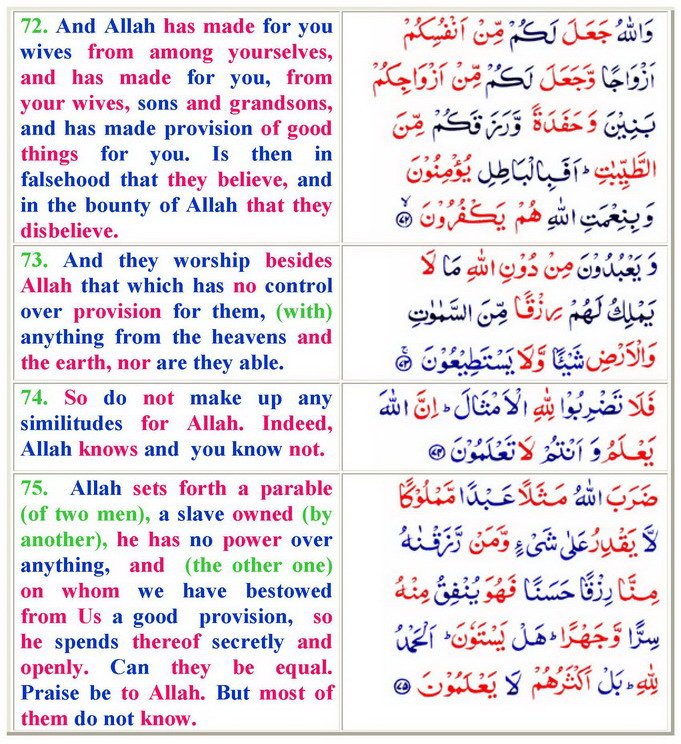 72. And Allah has made for you
wives from among yourselves,
and has made for you, from
your wives, sons and grandsons,
and has made provision of good
things for you. Is then in
falsehood that they believe, and
in the bounty of Allah that they
disbelieve.
وَاللّٰهُ جَعَلَ لَكُمْ مِّنْ اَنْفُسِكُمْ
اَزْوَاجًا وَّجَعَلَ لَكُمْ مِّنْ اَزْوَاجِكُمْ
بَنِيْنَ وَحَفَدَةً وَّرَزَقَكُمْ مِّنَ
الطَّيِّبٰتِ ؕ اَفَبِالْبَاطِلِ يُؤْمِنُوْنَ
وَبِنِعْمَتِ اللّٰهِ هُمْ يَكْفُرُوْنَ ۙ‏﴿۷۲﴾
73. And they worship besides
Allah that which has no control
over provision for them, (with)
anything from the heavens and
the earth, nor are they able.
وَيَعْبُدُوْنَ مِنْ دُوْنِ اللّٰهِ مَا لَا
يَمْلِكُ لَهُمْ رِزْقًا مِّنَ السَّمٰوٰتِ
وَالْاَرْضِ شَيْئًا وَّلَا يَسْتَطِيْعُوْنَ ۚ‏﴿۷۳﴾
74. So do not make up any
similitudes for Allah. Indeed,
Allah knows and you know not.
فَلَا تَضْرِبُوْا لِلّٰهِ الْاَمْثَالَ ؕ اِنَّ اللّٰهَ
يَعْلَمُ وَاَنْتُمْ لَا تَعْلَمُوْنَ ﴿۷۴﴾
75. Allah sets forth a parable
(of two men), a slave owned (by
another), he has no power over
anything, and (the other one)
on whom we have bestowed
from Us a good provision, so
he spends thereof secretly and
openly. Can they be equal.
Praise be to Allah. But most of
them do not know.
ضَرَبَ اللّٰهُ مَثَلًا عَبْدًا مَّمْلُوْكًا
لَّا يَقْدِرُ عَلٰى شَىْءٍ وَّمَنْ رَّزَقْنٰهُ
مِنَّا رِزْقًا حَسَنًا فَهُوَ يُنْفِقُ مِنْهُ
سِرًّا وَّجَهْرًا ؕ هَلْ يَسْتَوٗنَ ؕ اَلْحَمْدُ
لِلّٰهِ ؕ بَلْ اَكْثَرُهُمْ لَا يَعْلَمُوْنَ ﴿۷۵﴾